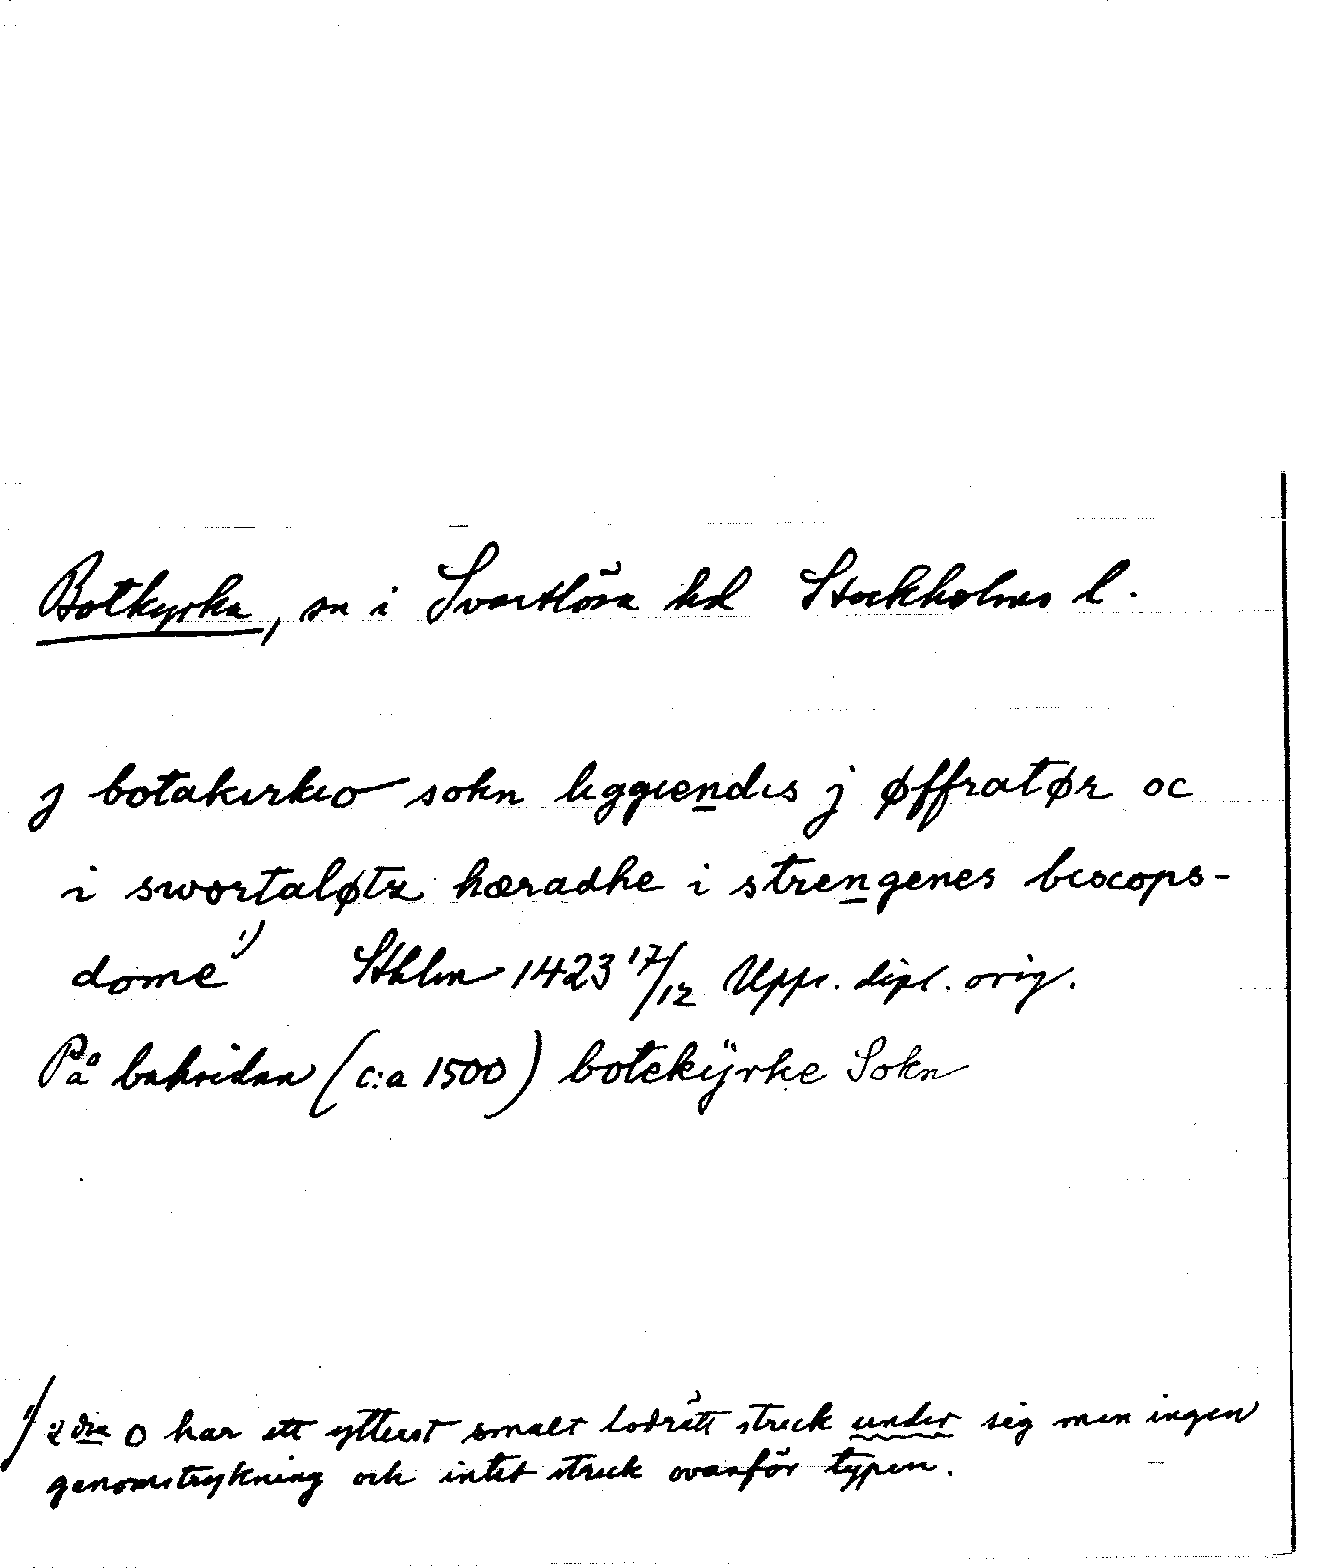 Botkyrka, sn i Svartlösa hd Stockholms l.
j botakirkio sokn liggiendis j øffratør oc
i swortaløtz hæradhe i strengenes biscops-
dome 1) Sthlm 1423 17/12 Upps. dipl. orig.
På baksidan (c:a 1500) botekÿrke Sokn
1) 2dra o har ett ytterst smalt lodrätt streck under sig men ingen
genomstrykning och intet streck ovanför typen.